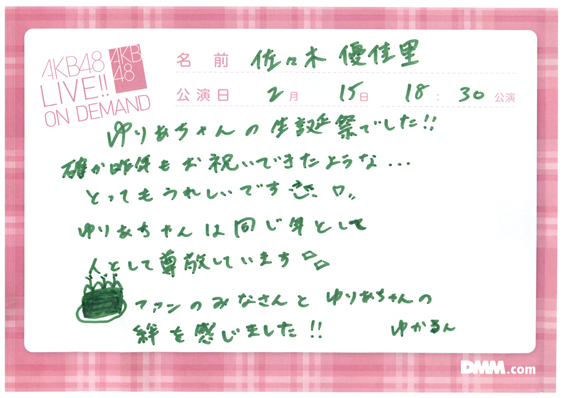 AKB48
LIVE!!
ON DEMAND
AKB
48
名前 佐々木 優佳里
公演日 2月 15日 18:30公演
ゆりあちゃんの生誕祭でした!!
確か昨年もお祝いできたような...
とってもうれしいです
ゆりあちゃんは同じ年として
人として尊敬しています
ファンのみなさんとゆりあちゃんの
絆を感じました!!
ゆかるん
DMM.com